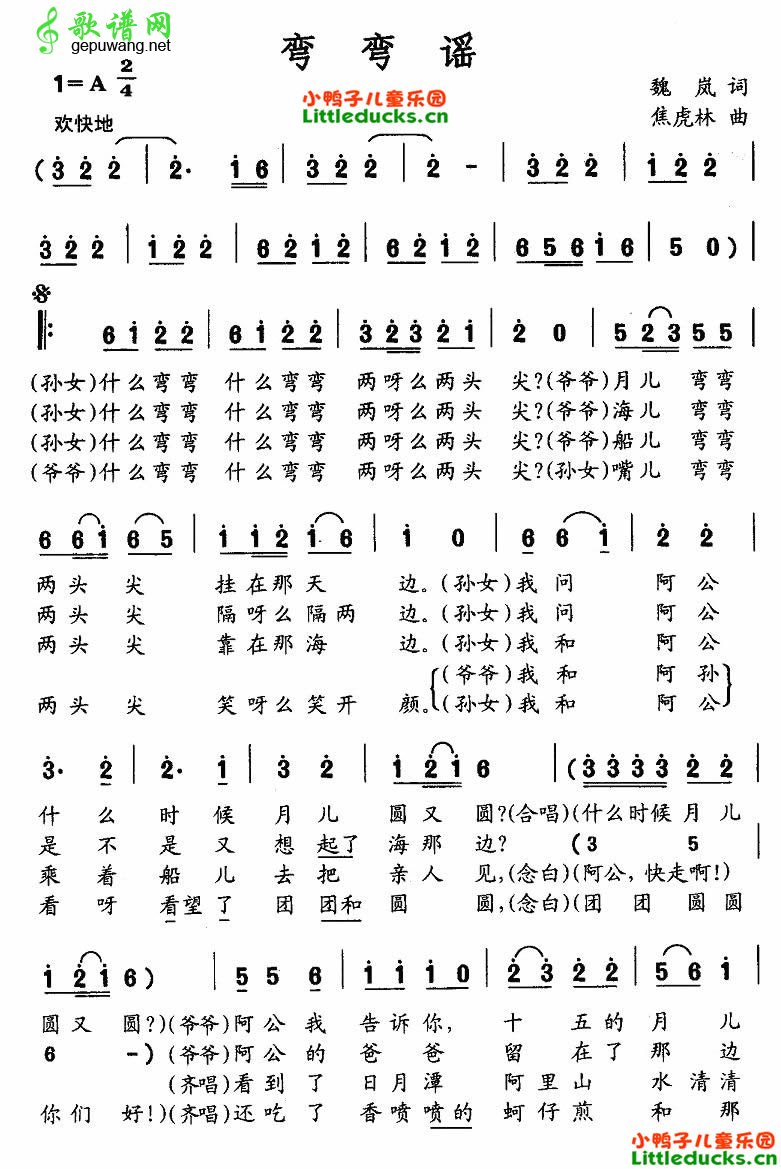 歌谱网
gepuwang.net
弯弯谣
1=A 2/4
小鸭子儿童乐园
Littleducks.cn
魏 岚 词
焦虎林 曲
欢快地
( 3 2 2 | 2· 1 6 | 3 2 2 | 2 - | 3 2 2 | 1 2 2 |
3 2 2 | 1 2 2 | 6 2 1 2 | 6 2 1 2 | 6 5 6 1 6 | 5 0 ) |
𝄋
‖: 6 1 2 2 | 6 1 2 2 | 3 2 3 2 1 | 2 0 | 5 2 3 5 5 |
(孙女)什么弯弯 什么弯弯 两呀么两头 尖?(爷爷)月儿 弯弯
(孙女)什么弯弯 什么弯弯 两呀么两头 尖?(爷爷)海儿 弯弯
(孙女)什么弯弯 什么弯弯 两呀么两头 尖?(爷爷)船儿 弯弯
(爷爷)什么弯弯 什么弯弯 两呀么两头 尖?(孙女)嘴儿 弯弯
6 6 1 6 5 | 1 1 2 1 6 | 1 0 | 6 6 1 | 2 2 |
两头 尖 挂在那天 边。(孙女)我问 阿公
两头 尖 隔呀么隔两 边。(孙女)我问 阿公
两头 尖 靠在那海 边。(孙女)我和 阿公
(爷爷)我和 阿孙
两头 尖 笑呀么笑开 颜。(孙女)我和 阿公
3· 2 | 2· 1 | 3 2 | 1 2 1 6 | ( 3 3 3 3 2 2 |
什么 时候 月儿 圆又 圆?(合唱)(什么时候月儿
是不 是又 想起了 海那 边? (3 5
乘着 船儿 去把 亲人 见,(念白)(阿公,快走啊!)
看呀 看望了 团团和 圆 圆,(念白)(团团圆圆
1 2 1 6 ) | 5 5 6 | 1 1 1 0 | 2 3 2 2 | 5 6 1 |
圆又 圆?)(爷爷)阿公我 告诉你, 十五的 月儿
6 -)(爷爷)阿公的 爸爸 留在了 那边
(齐唱)看到了 日月潭 阿里山 水清清
你们 好!)(齐唱)还吃了 香喷喷的 蚵仔煎 和那
小鸭子儿童乐园
Littleducks.cn